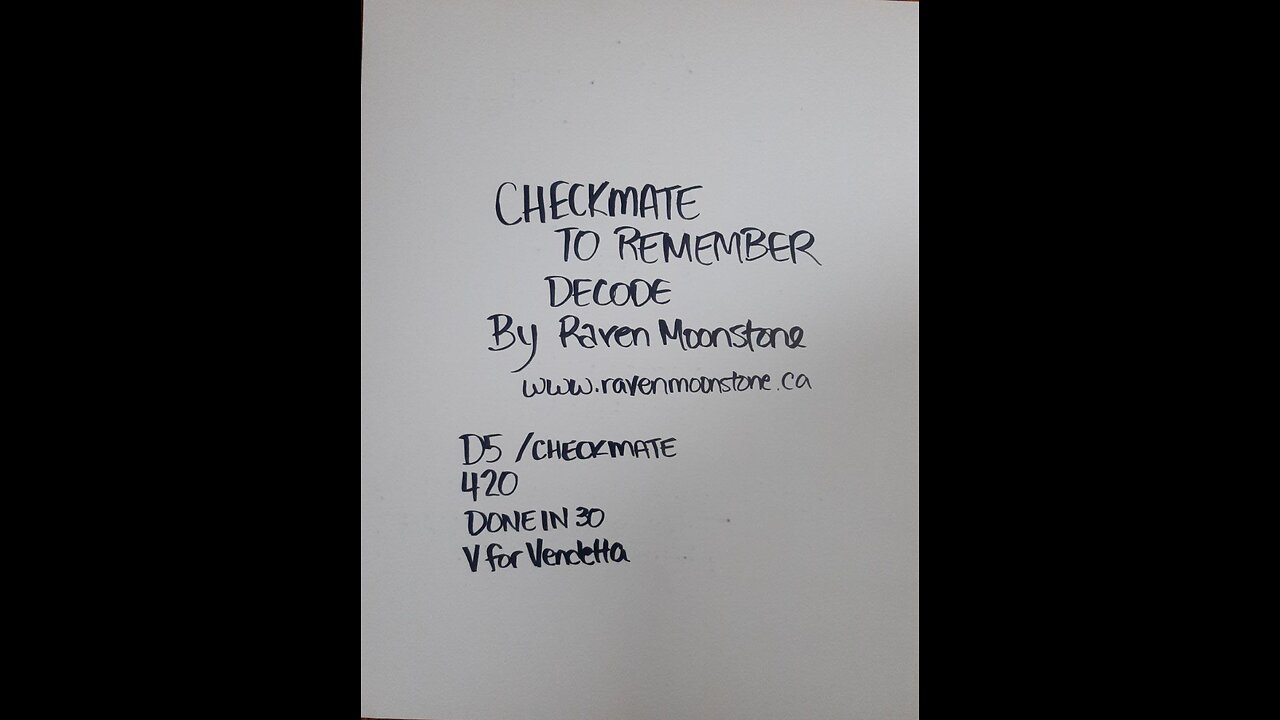 CHECKMATE
TO REMEMBER
DECODE
By Raven Moonstone
www.ravenmoonstone.ca
D5 /CHECKMATE
420
DONE IN 30
V for Vendetta